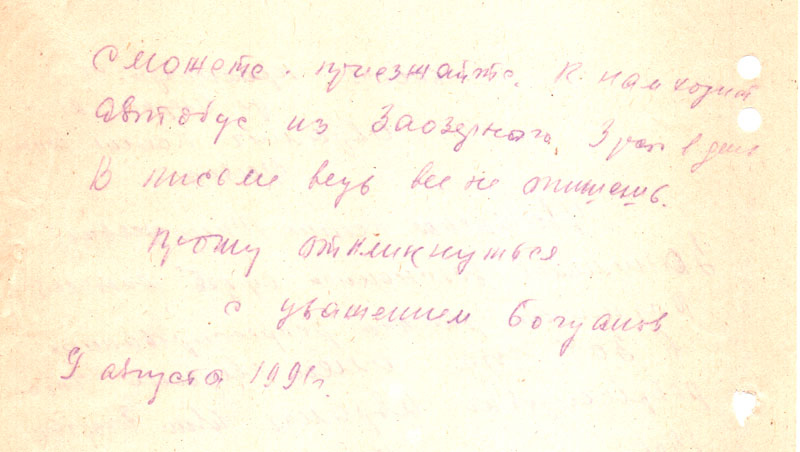 сможете. приезжайте. к нам ходит
автобус из Заозерного. 3 раз в день
В письме ведь все не опишешь.
прошу откликнуться
с уважением Богданов
9 августа 1991г